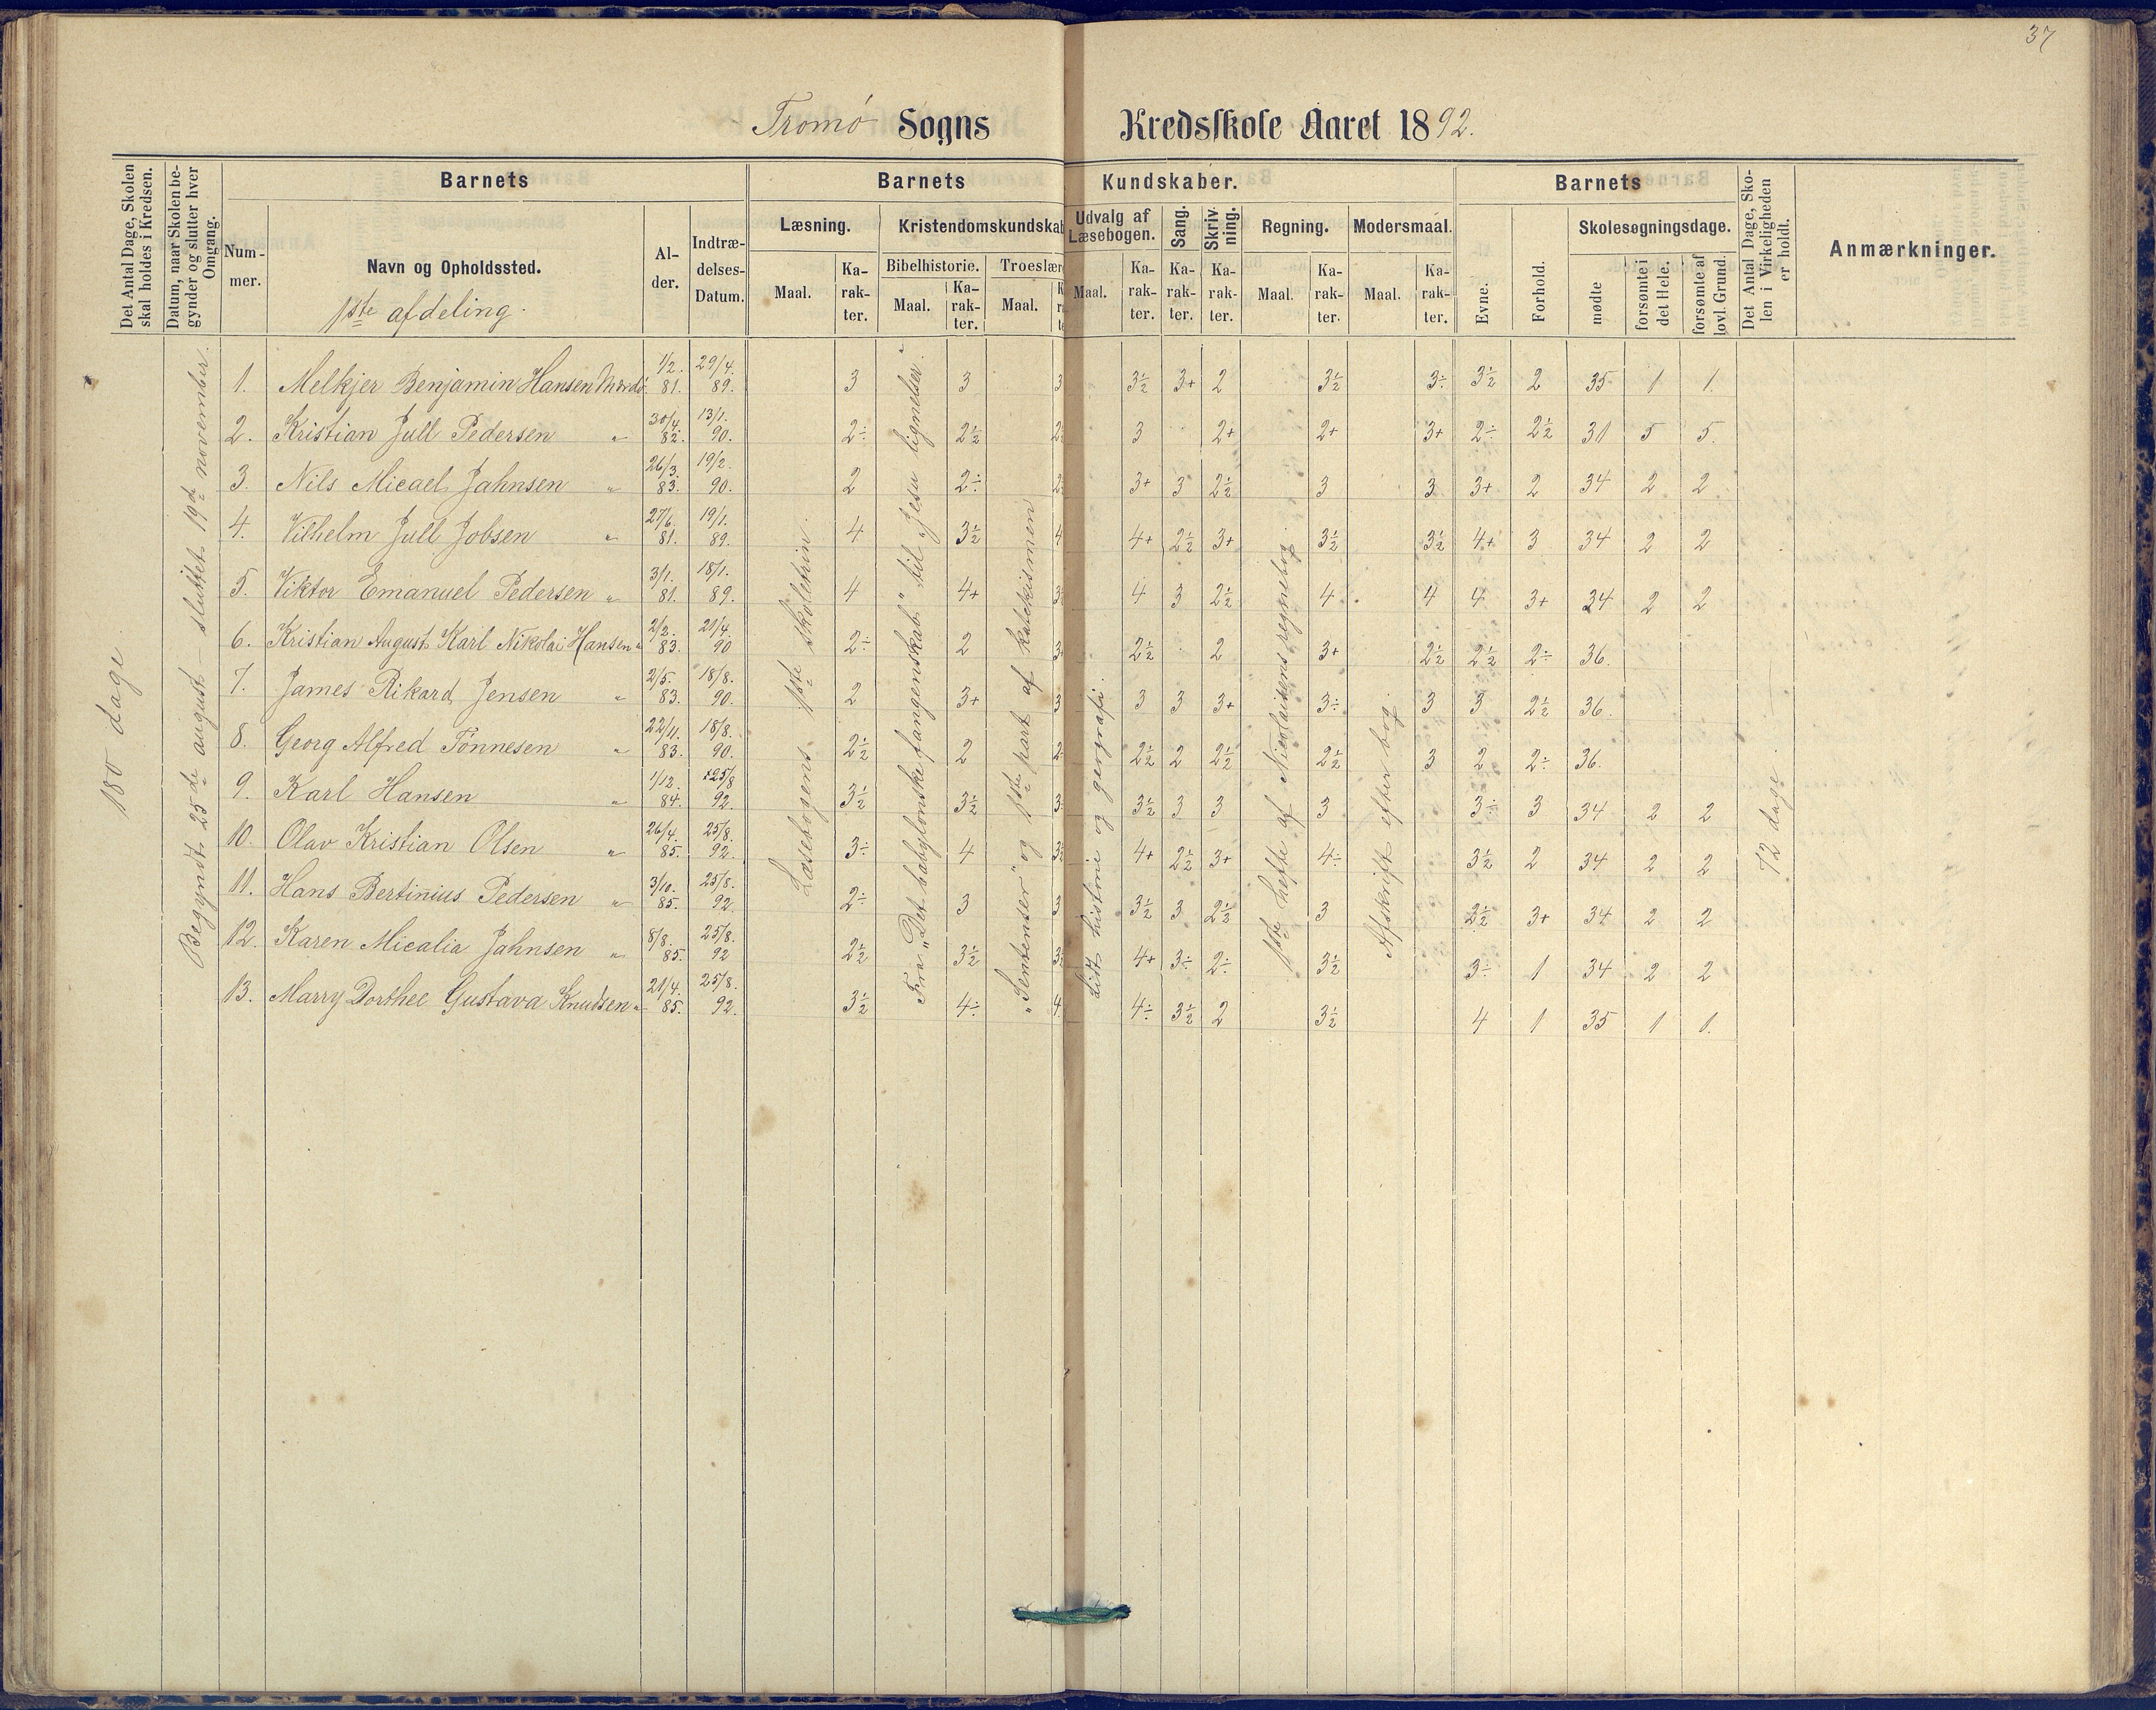 37
Tromø Sogns Kredsskole Aaret 1892.
Det Antal Dage, Skolen skal holdes i Kredsen.
Datum, naar Skolen begynder og slutter hver Omgang.
Barnets
Nummer.
Navn og Opholdssted.
1ste afdeling.
Alder.
Indtrædelses-Datum.
Barnets Kundskaber.
Læsning.
Maal. Karakter.
Kristendomskundskab
Bibelhistorie. Troeslær
Maal. Karakter. Maal.
Udvalg af Læsebogen.
Maal. Karakter.
Sang. Karakter.
Skrivning. Karakter.
Regning.
Maal. Karakter.
Modersmaal.
Maal. Karakter.
Barnets
Evne. Forhold.
Skolesøgningsdage.
mødte forsømte i det Hele. forsømte af lovl. Grund.
Det Antal Dage, Skolen i Virkeligheden er holdt.
Anmærkninger.
180 dage
Begyndt 25de august – sluttet 19de november.
Læsebogens 1ste skoletrin.
Fra „Det babylonske fangenskab" til „Jesu lignelser."
„Sentenser" og 1ste part af katekismen
Lidt historie og geografi.
1ste hefte af Nicolaisens regnebog.
Afskrift efter bog.
72 dage.
1. Melkjer Benjamin Hansen Mærdø. 1/2. 81. 29/4. 89. 3 3 3 3½ 3+ 2 3½ 3÷ 3½ 2 35 1 1.
2. Kristian Jull Pedersen „ 30/4. 82. 13/1. 90. 2÷ 2½ 2 3 2+ 2+ 3+ 2÷ 2½ 31 5 5.
3. Nils Micael Jahnsen „ 26/3. 83. 19/2. 90. 2 2÷ 2 3+ 3 2½ 3 3 3+ 2 34 2 2
4. Vilhelm Jull Jobsen „ 27/6. 81. 19/1. 89. 4 3½ 4 4+ 2½ 3+ 3½ 3½ 4+ 3 34 2 2
5. Viktor Emanuel Pedersen „ 3/1. 81. 18/1. 89. 4 4+ 3 4 3 2½ 4 4 4 3+ 34 2 2
6. Kristian August Karl Nikolai Hansen „ 2/2. 83. 21/4. 90 2÷ 2 3+ 2½ 2 3+ 2½ 2½ 2÷ 36.
7. James Rikard Jensen „ 2/5. 83. 18/8. 90. 2 3+ 3 3 3 3+ 3÷ 3 3 2½ 36.
8. Georg Alfred Tønnesen „ 22/11. 83. 18/8. 90. 2½ 2 2 2½ 2 2½ 2½ 3 2 2÷ 36.
9. Karl Hansen „ 1/12. 84. 25/8 92. 3½ 3½ 3 3½ 3 3 3 3÷ 3 34 2 2
10. Olav Kristian Olsen „ 26/4. 85. 25/8. 92. 3÷ 4 3½ 4+ 2½ 3+ 4÷ 3½ 2 34 2 2
11. Hans Bertinius Pedersen „ 3/10. 85. 25/8. 92. 2÷ 3 3 3½ 3 2½ 3 2½ 3+ 34 2 2
12. Karen Micalia Jahnsen „ 8/8. 85. 25/8. 92 2½ 3½ 3½ 4+ 3÷ 2÷ 3½ 3÷ 1 34 2 2
13. Marry Dorthee Gustava Knudsen „ 21/4. 85. 25/8. 92. 3½ 4÷ 4 4÷ 3½ 2 3½ 4 1 35 1 1.